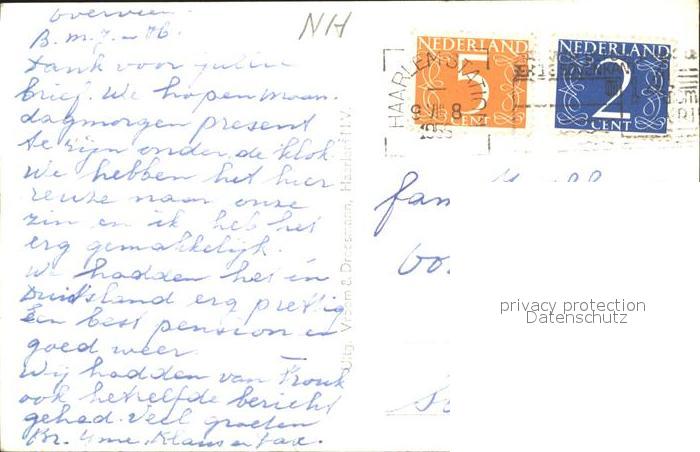 overveen
B.m.z. - 76.
Dank voor jullie
brief. We hopen maan-
dagmorgen present
te zijn onder de klok
We hebben het hier
reuze naar onze
zin en ik heb het
erg gemakkelijk.
We hadden het in
Duitsland erg prettig
Een best pension en
goed weer.
Wij hadden van
ook hetzelfde bericht
gehad. Veel groeten
Klaas en
NH
Uitg. Vroom & Dreesmann, Haarlem N.V.
HAARLEM-STATION
8
NEDERLAND
5
CENT
NEDERLAND
2
CENT
fam
privacy protection
Datenschutz